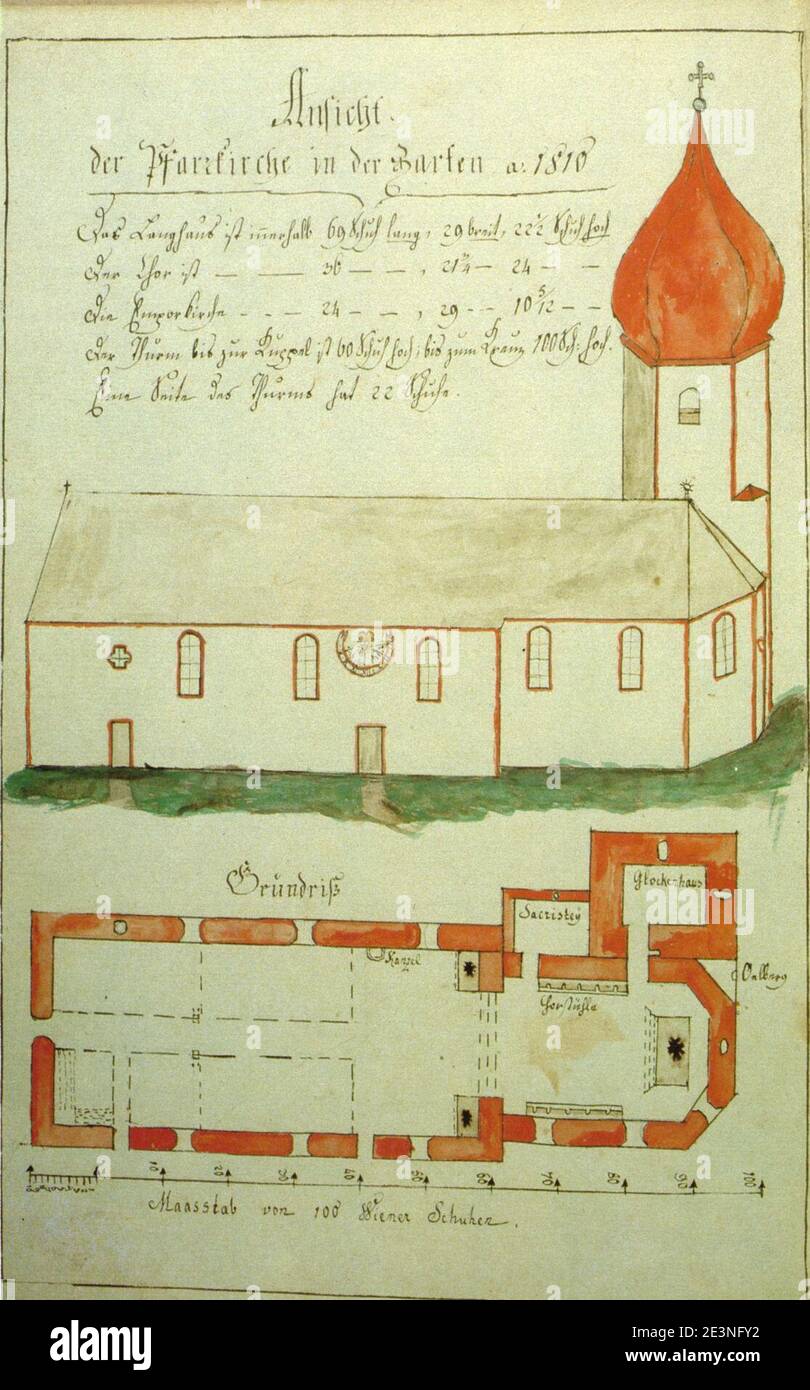 Ansicht.
der Pfarrkirche in der Barten a: 1816
Das Langhaus ist innerhalb 69 Schuh lang, 29 breit, 22½ Schuh hoch
Der Chor ist — — 36 — — , 21¼ — 24 — —
Die Emporkirche - - - 24 — — , 29 - - 10 5/12 — —
Der Thurm bis zur Kuppel ist 60 Schuh hoch, bis zum Kreuz 100 Sch: hoch.
Eine Seite des Thurms hat 22 Schuhe.
Grundriß
Glockenhaus
Sacristey
Kanzel
Oelberg
Chorstühle
10 20 30 40 50 60 70 80 90 100
Maasstab von 100 Wiener Schuhen.
alamy
Image ID: 2E3NFY2
www.alamy.com